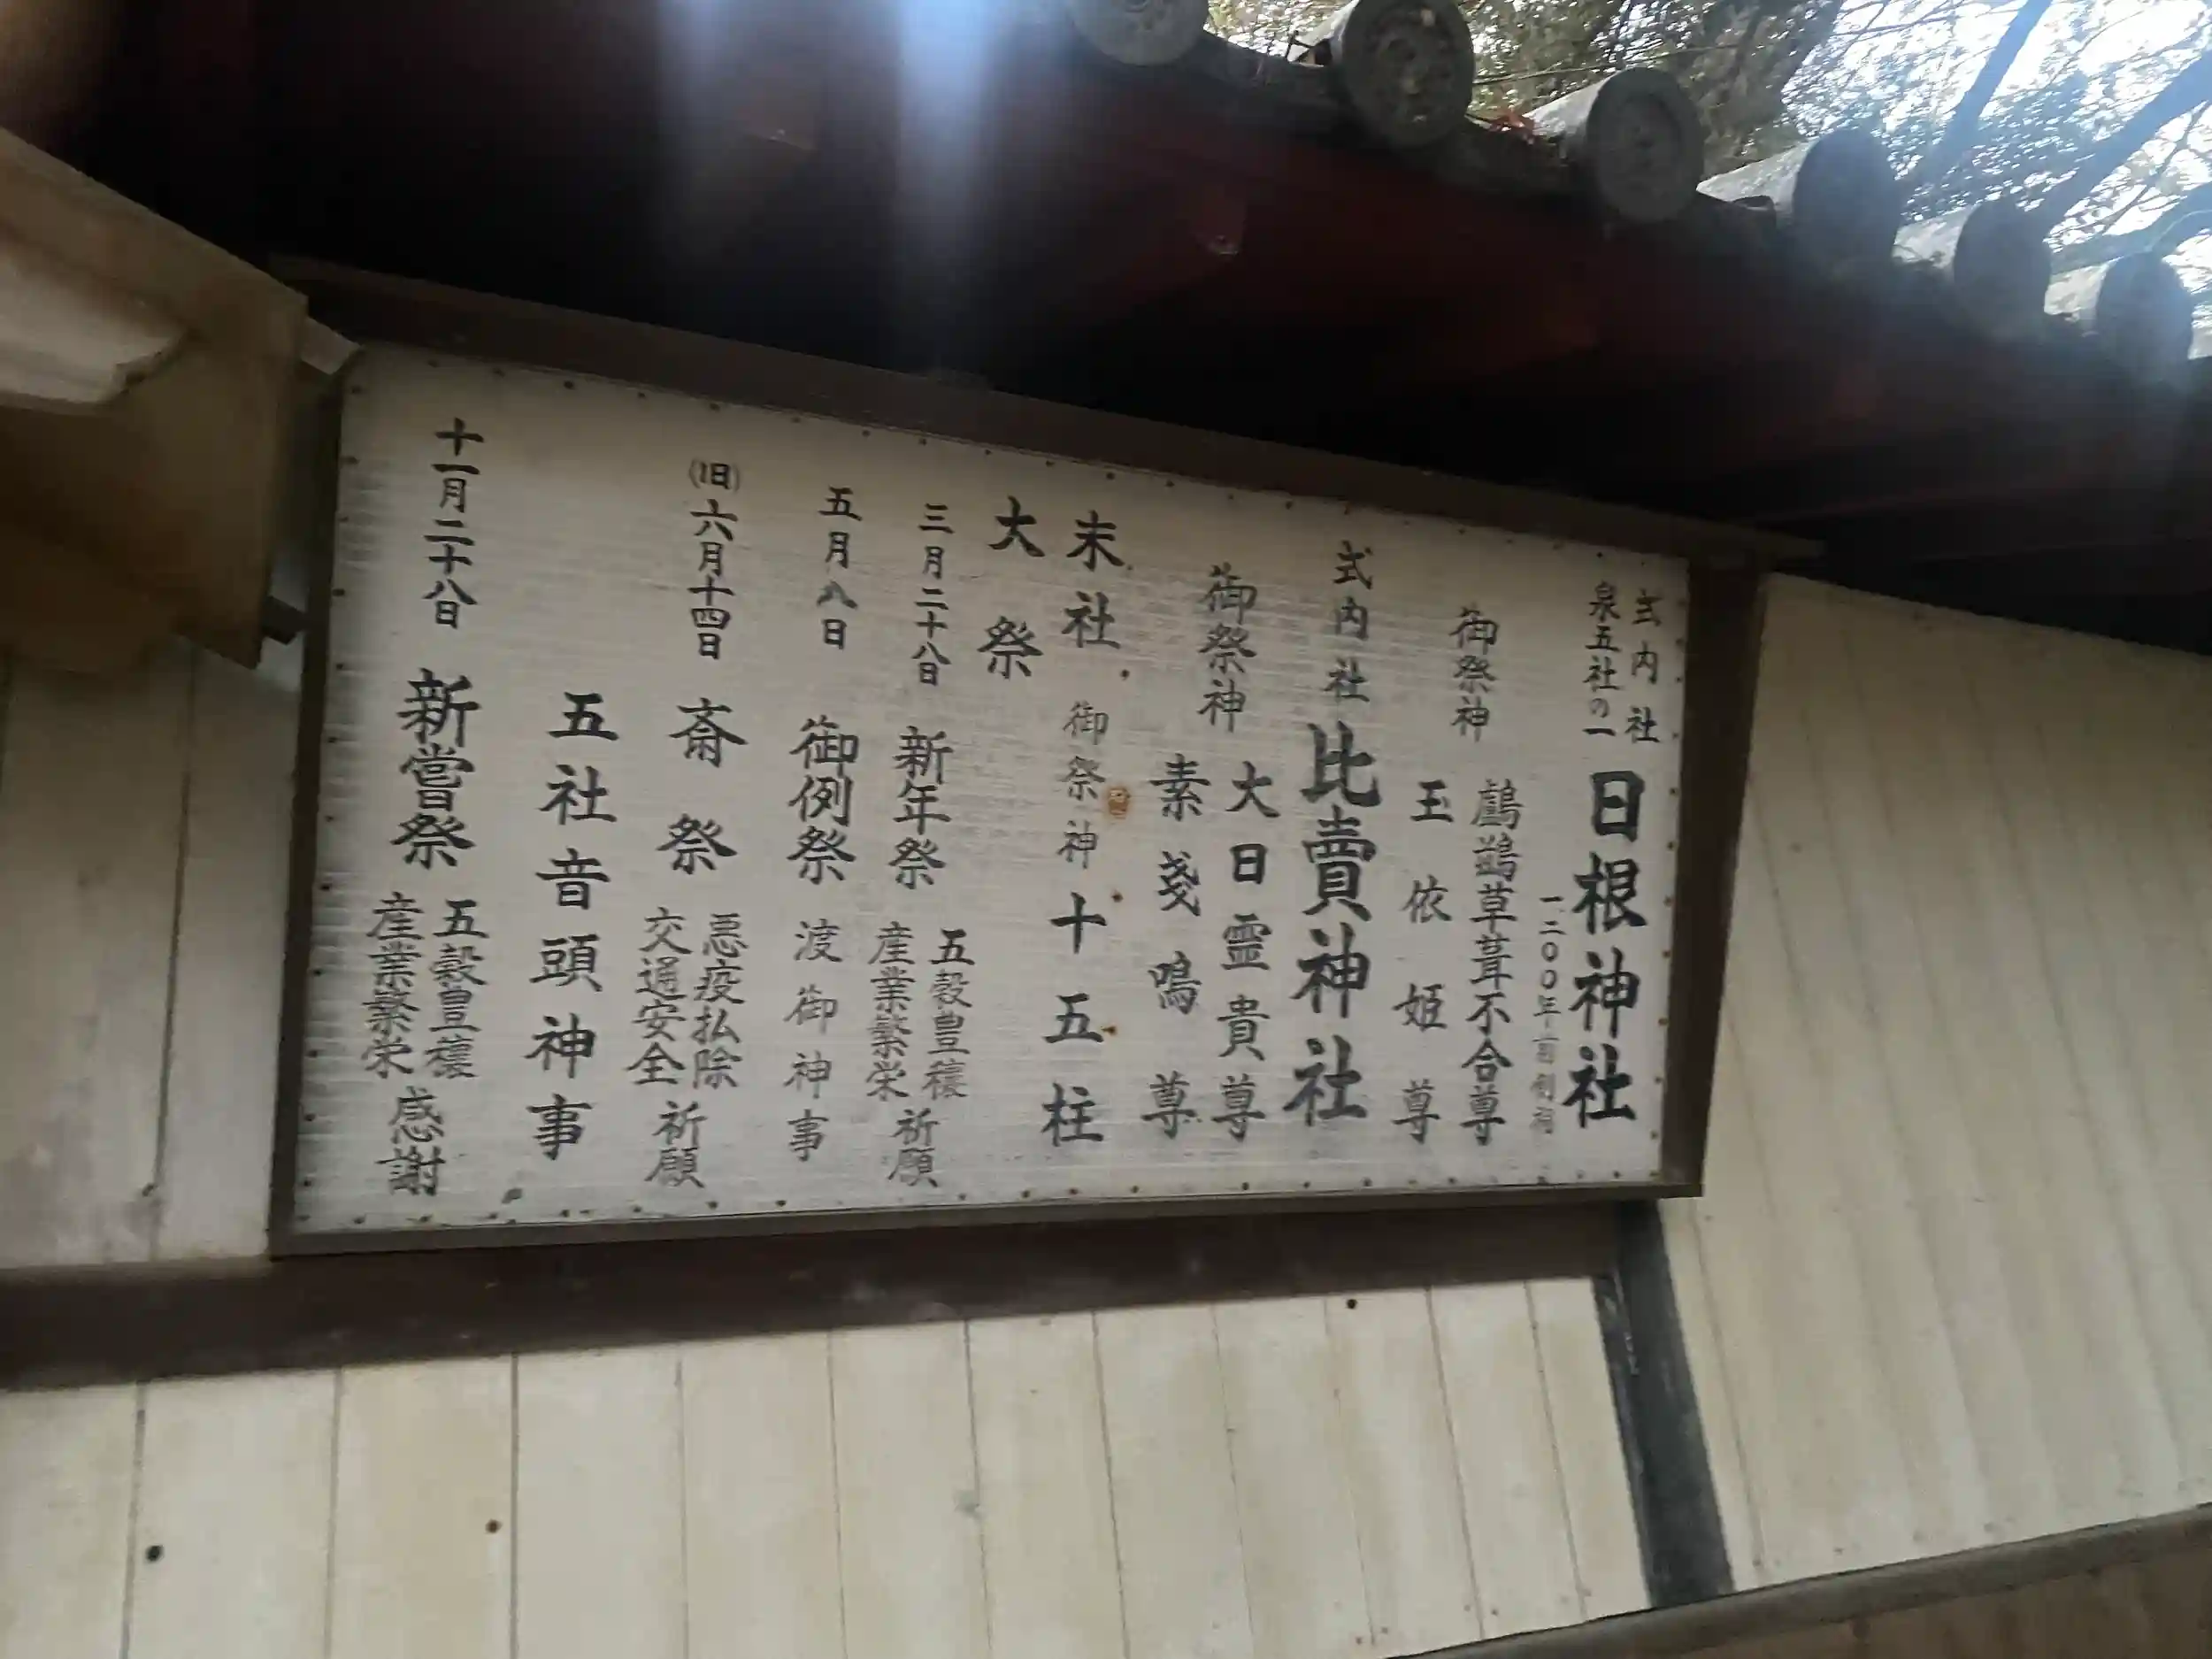 式内社
泉五社の一
日根神社
一二〇〇年前創祀
御祭神
鸕鷀草葺不合尊
玉依姫尊
式内社 比賣神社
御祭神
大日霊貴尊
素戔嗚尊
末社 御祭神 十五柱
大祭
三月二十八日 新年祭 五穀豊穣 産業繁栄 祈願
五月八日 御例祭 渡御神事
(旧)六月十四日 斎祭 忌疫払除 交通安全 祈願
五社音頭神事
十一月二十八日 新嘗祭 五穀豊穣 産業繁栄 感謝